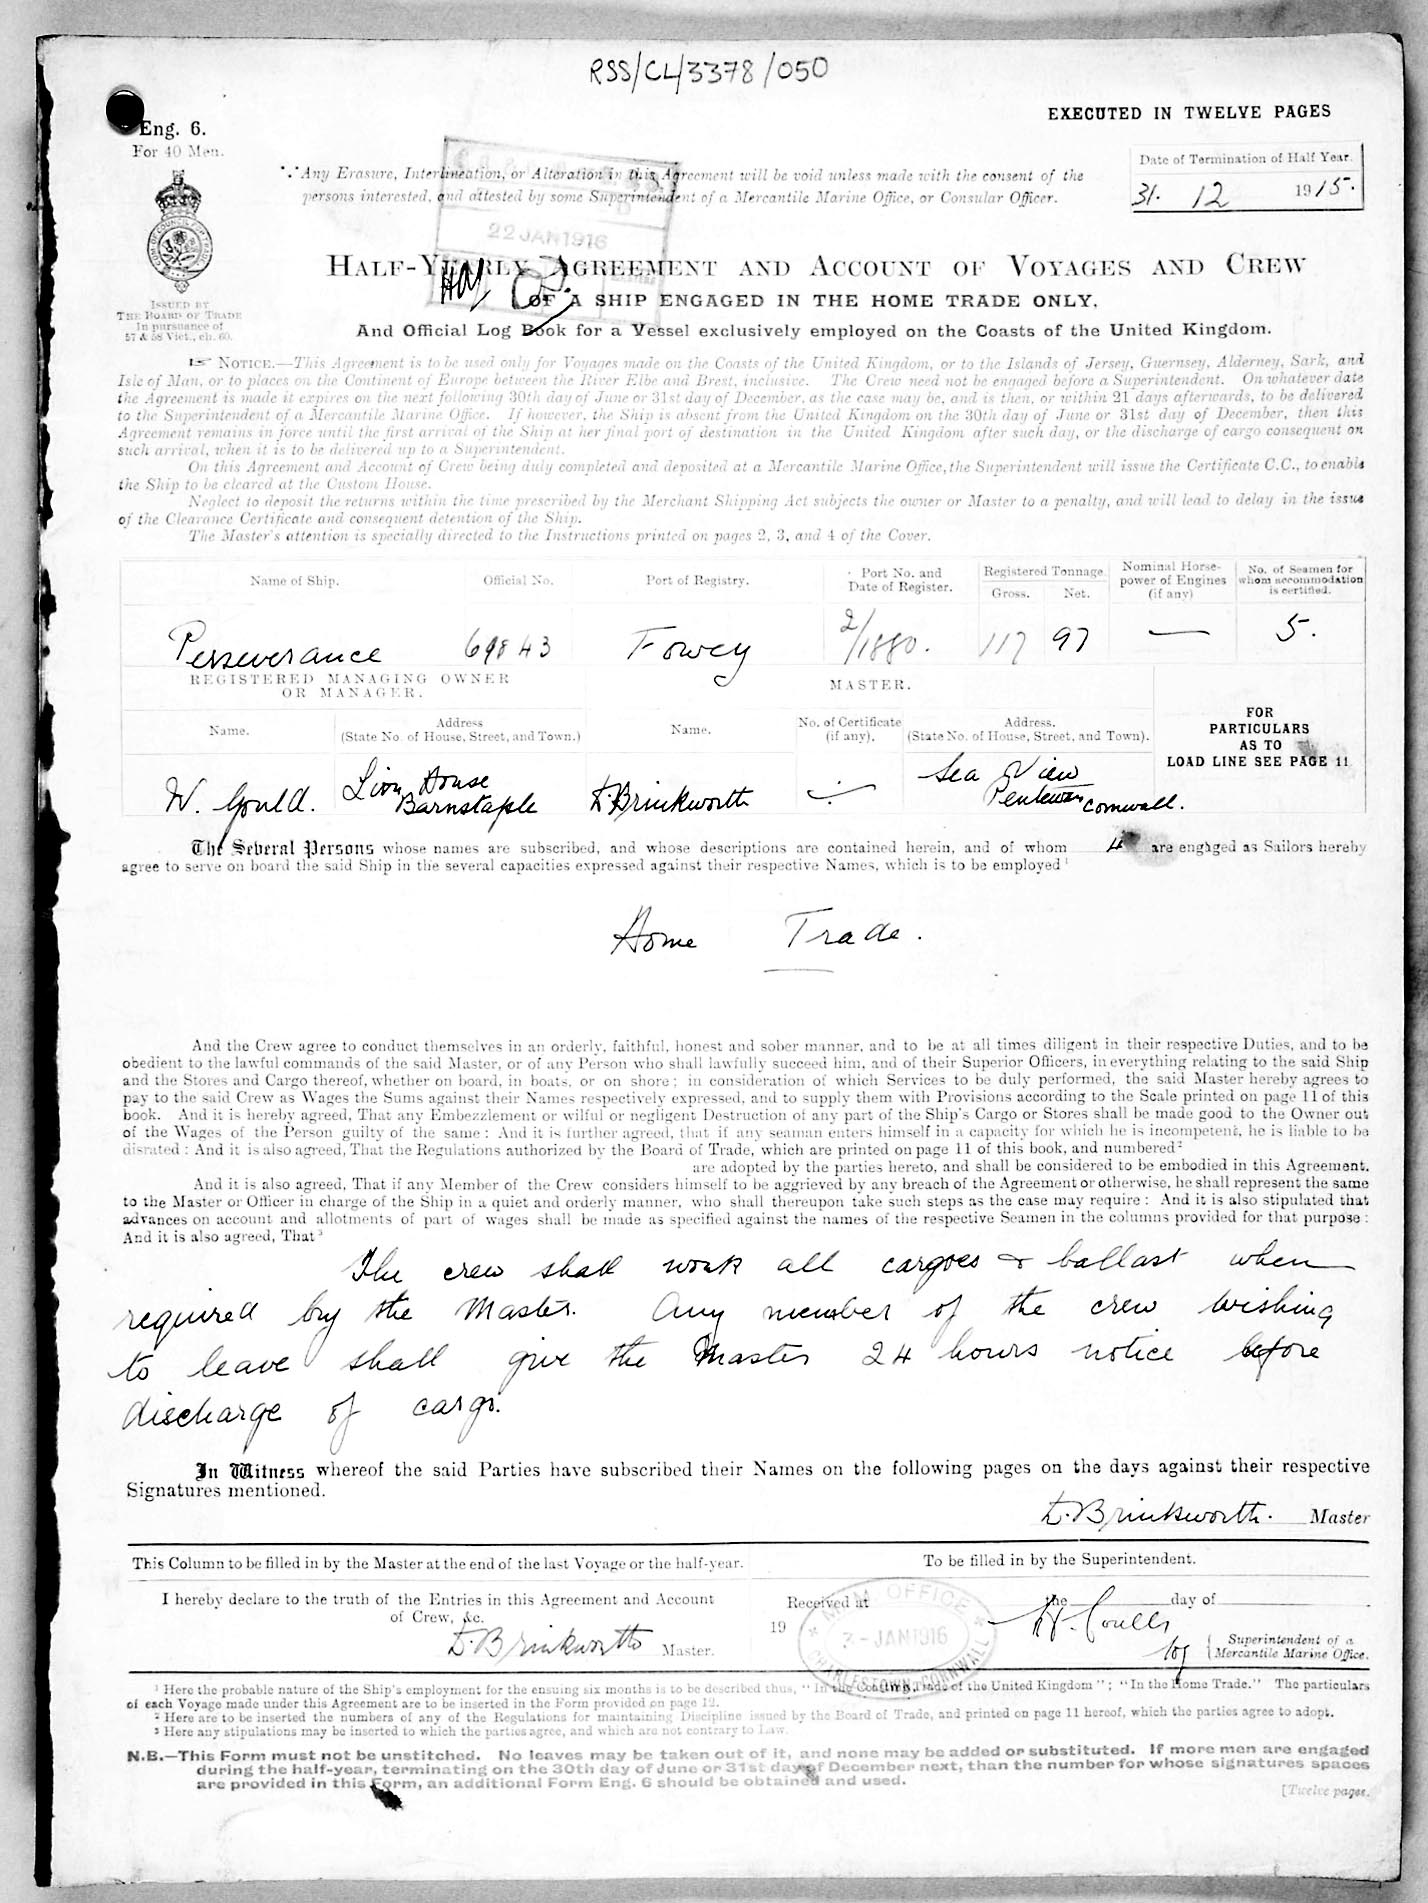 RSS/CL/3378/050
EXECUTED IN TWELVE PAGES
Eng. 6.
For 40 Men.
Date of Termination of Half Year.
31. 12 1915.
∵ Any Erasure, Interlineation, or Alteration in this Agreement will be void unless made with the consent of the
persons interested, and attested by some Superintendent of a Mercantile Marine Office, or Consular Officer.
22 JAN 1916
ISSUED BY
THE BOARD OF TRADE
In pursuance of
57 & 58 Vict., ch. 60.
HALF-YEARLY AGREEMENT AND ACCOUNT OF VOYAGES AND CREW
OF A SHIP ENGAGED IN THE HOME TRADE ONLY,
And Official Log Book for a Vessel exclusively employed on the Coasts of the United Kingdom.
☞ NOTICE.—This Agreement is to be used only for Voyages made on the Coasts of the United Kingdom, or to the Islands of Jersey, Guernsey, Alderney, Sark, and
Isle of Man, or to places on the Continent of Europe between the River Elbe and Brest, inclusive. The Crew need not be engaged before a Superintendent. On whatever date
the Agreement is made it expires on the next following 30th day of June or 31st day of December, as the case may be, and is then, or within 21 days afterwards, to be delivered
to the Superintendent of a Mercantile Marine Office. If however, the Ship is absent from the United Kingdom on the 30th day of June or 31st day of December, then this
Agreement remains in force until the first arrival of the Ship at her final port of destination in the United Kingdom after such day, or the discharge of cargo consequent on
such arrival, when it is to be delivered up to a Superintendent.
On this Agreement and Account of Crew being duly completed and deposited at a Mercantile Marine Office, the Superintendent will issue the Certificate C.C., to enable
the Ship to be cleared at the Custom House.
Neglect to deposit the returns within the time prescribed by the Merchant Shipping Act subjects the owner or Master to a penalty, and will lead to delay in the issue
of the Clearance Certificate and consequent detention of the Ship.
The Master's attention is specially directed to the Instructions printed on pages 2, 3, and 4 of the Cover.
Name of Ship. Official No. Port of Registry. Port No. and Date of Register. Registered Tonnage. Gross. Net. Nominal Horse-power of Engines (if any) No. of Seamen for whom accommodation is certified.
Perseverance 69843 Fowey 2/1880. 117 97 — 5.
REGISTERED MANAGING OWNER
OR MANAGER.
MASTER.
FOR
PARTICULARS
AS TO
LOAD LINE SEE PAGE 11
Name. Address (State No. of House, Street, and Town.) Name. No. of Certificate (if any). Address. (State No. of House, Street, and Town).
W. Gould. Lion House Barnstaple D. Brinkworth Sea View Pentewan Cornwall.
The Several Persons whose names are subscribed, and whose descriptions are contained herein, and of whom 4 are engaged as Sailors hereby
agree to serve on board the said Ship in the several capacities expressed against their respective Names, which is to be employed¹
Home Trade.
And the Crew agree to conduct themselves in an orderly, faithful, honest and sober manner, and to be at all times diligent in their respective Duties, and to be
obedient to the lawful commands of the said Master, or of any Person who shall lawfully succeed him, and of their Superior Officers, in everything relating to the said Ship
and the Stores and Cargo thereof, whether on board, in boats, or on shore; in consideration of which Services to be duly performed, the said Master hereby agrees to
pay to the said Crew as Wages the Sums against their Names respectively expressed, and to supply them with Provisions according to the Scale printed on page 11 of this
book. And it is hereby agreed, That any Embezzlement or wilful or negligent Destruction of any part of the Ship's Cargo or Stores shall be made good to the Owner out
of the Wages of the Person guilty of the same: And it is further agreed, that if any seaman enters himself in a capacity for which he is incompetent, he is liable to be
disrated: And it is also agreed, That the Regulations authorized by the Board of Trade, which are printed on page 11 of this book, and numbered²
are adopted by the parties hereto, and shall be considered to be embodied in this Agreement.
And it is also agreed, That if any Member of the Crew considers himself to be aggrieved by any breach of the Agreement or otherwise, he shall represent the same
to the Master or Officer in charge of the Ship in a quiet and orderly manner, who shall thereupon take such steps as the case may require: And it is also stipulated that
advances on account and allotments of part of wages shall be made as specified against the names of the respective Seamen in the columns provided for that purpose:
And it is also agreed, That³
The crew shall work all cargoes & ballast when
required by the Master. Any member of the crew wishing
to leave shall give the Master 24 hours notice before
discharge of cargo.
In Witness whereof the said Parties have subscribed their Names on the following pages on the days against their respective
Signatures mentioned.
D. Brinkworth. Master
This Column to be filled in by the Master at the end of the last Voyage or the half-year.
To be filled in by the Superintendent.
I hereby declare to the truth of the Entries in this Agreement and Account
of Crew, &c.
D. Brinkworth Master.
Received at the day of
19
M.M. OFFICE
3-JAN 1916
CHARLESTOWN, CORNWALL
Superintendent of a
Mercantile Marine Office.
¹ Here the probable nature of the Ship's employment for the ensuing six months is to be described thus, "In the Coasting Trade of the United Kingdom"; "In the Home Trade." The particulars
of each Voyage made under this Agreement are to be inserted in the Form provided on page 12.
² Here are to be inserted the numbers of any of the Regulations for maintaining Discipline issued by the Board of Trade, and printed on page 11 hereof, which the parties agree to adopt.
³ Here any stipulations may be inserted to which the parties agree, and which are not contrary to Law.
N.B.—This Form must not be unstitched. No leaves may be taken out of it, and none may be added or substituted. If more men are engaged
during the half-year, terminating on the 30th day of June or 31st day of December next, than the number for whose signatures spaces
are provided in this Form, an additional Form Eng. 6 should be obtained and used.
[Twelve pages.